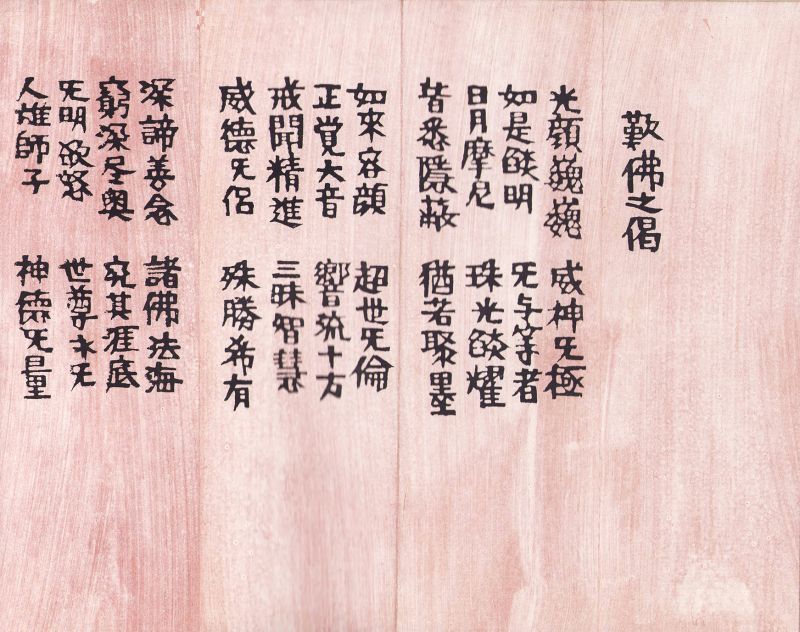 歎佛之偈
光顔巍巍 威神无極
如是燄明 无与等者
日月摩尼 珠光燄耀
皆悉隱蔽 猶若聚墨
如來容顔 超世无倫
正覚大音 響流十方
戒聞精進 三昧智慧
威德无侶 殊勝希有
深諦善念 諸佛法海
窮深尽奥 究其涯底
无明欲怒 世尊永无
人雄師子 神德无量